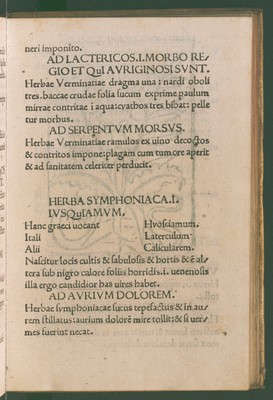 neri imponito.
AD LACTERICOS.I.MORBO RE-
GIO ET QuI AVRIGINOSI SVNT.
Herbae Verminatiae dragma una: nardi oboli
tres. baccae crudae folia sucum exprime. paulum
mirrae contritae ĩ aqua: cyathos tres bibat: pelle
tur morbus.
AD SERPENTVM MORSVS.
Herbae Verminatiae ramulos ex uino decoctos
& contritos impone: plagam cum tumore aperit
& ad sanitatem celeriter perducit.
HERBA SYMPHONIACA.I.
IVSQuIAMVM.
Hanc graeci uocant Hyosciamum.
Itali Laterculum.
Alii Calicularem.
Nascitur locis cultis & sabulosis & hortis & ē al-
tera sub nigro calore foliis horridis.i. uenenosis
illa ergo candidior has uires habet.
AD AVRIVM DOLOREM.
Herbae symphoniacae sucus tepefactus & in au-
rem stillatus: aurium dolorē mire tollit: & si uer-
mes fuerint necat.